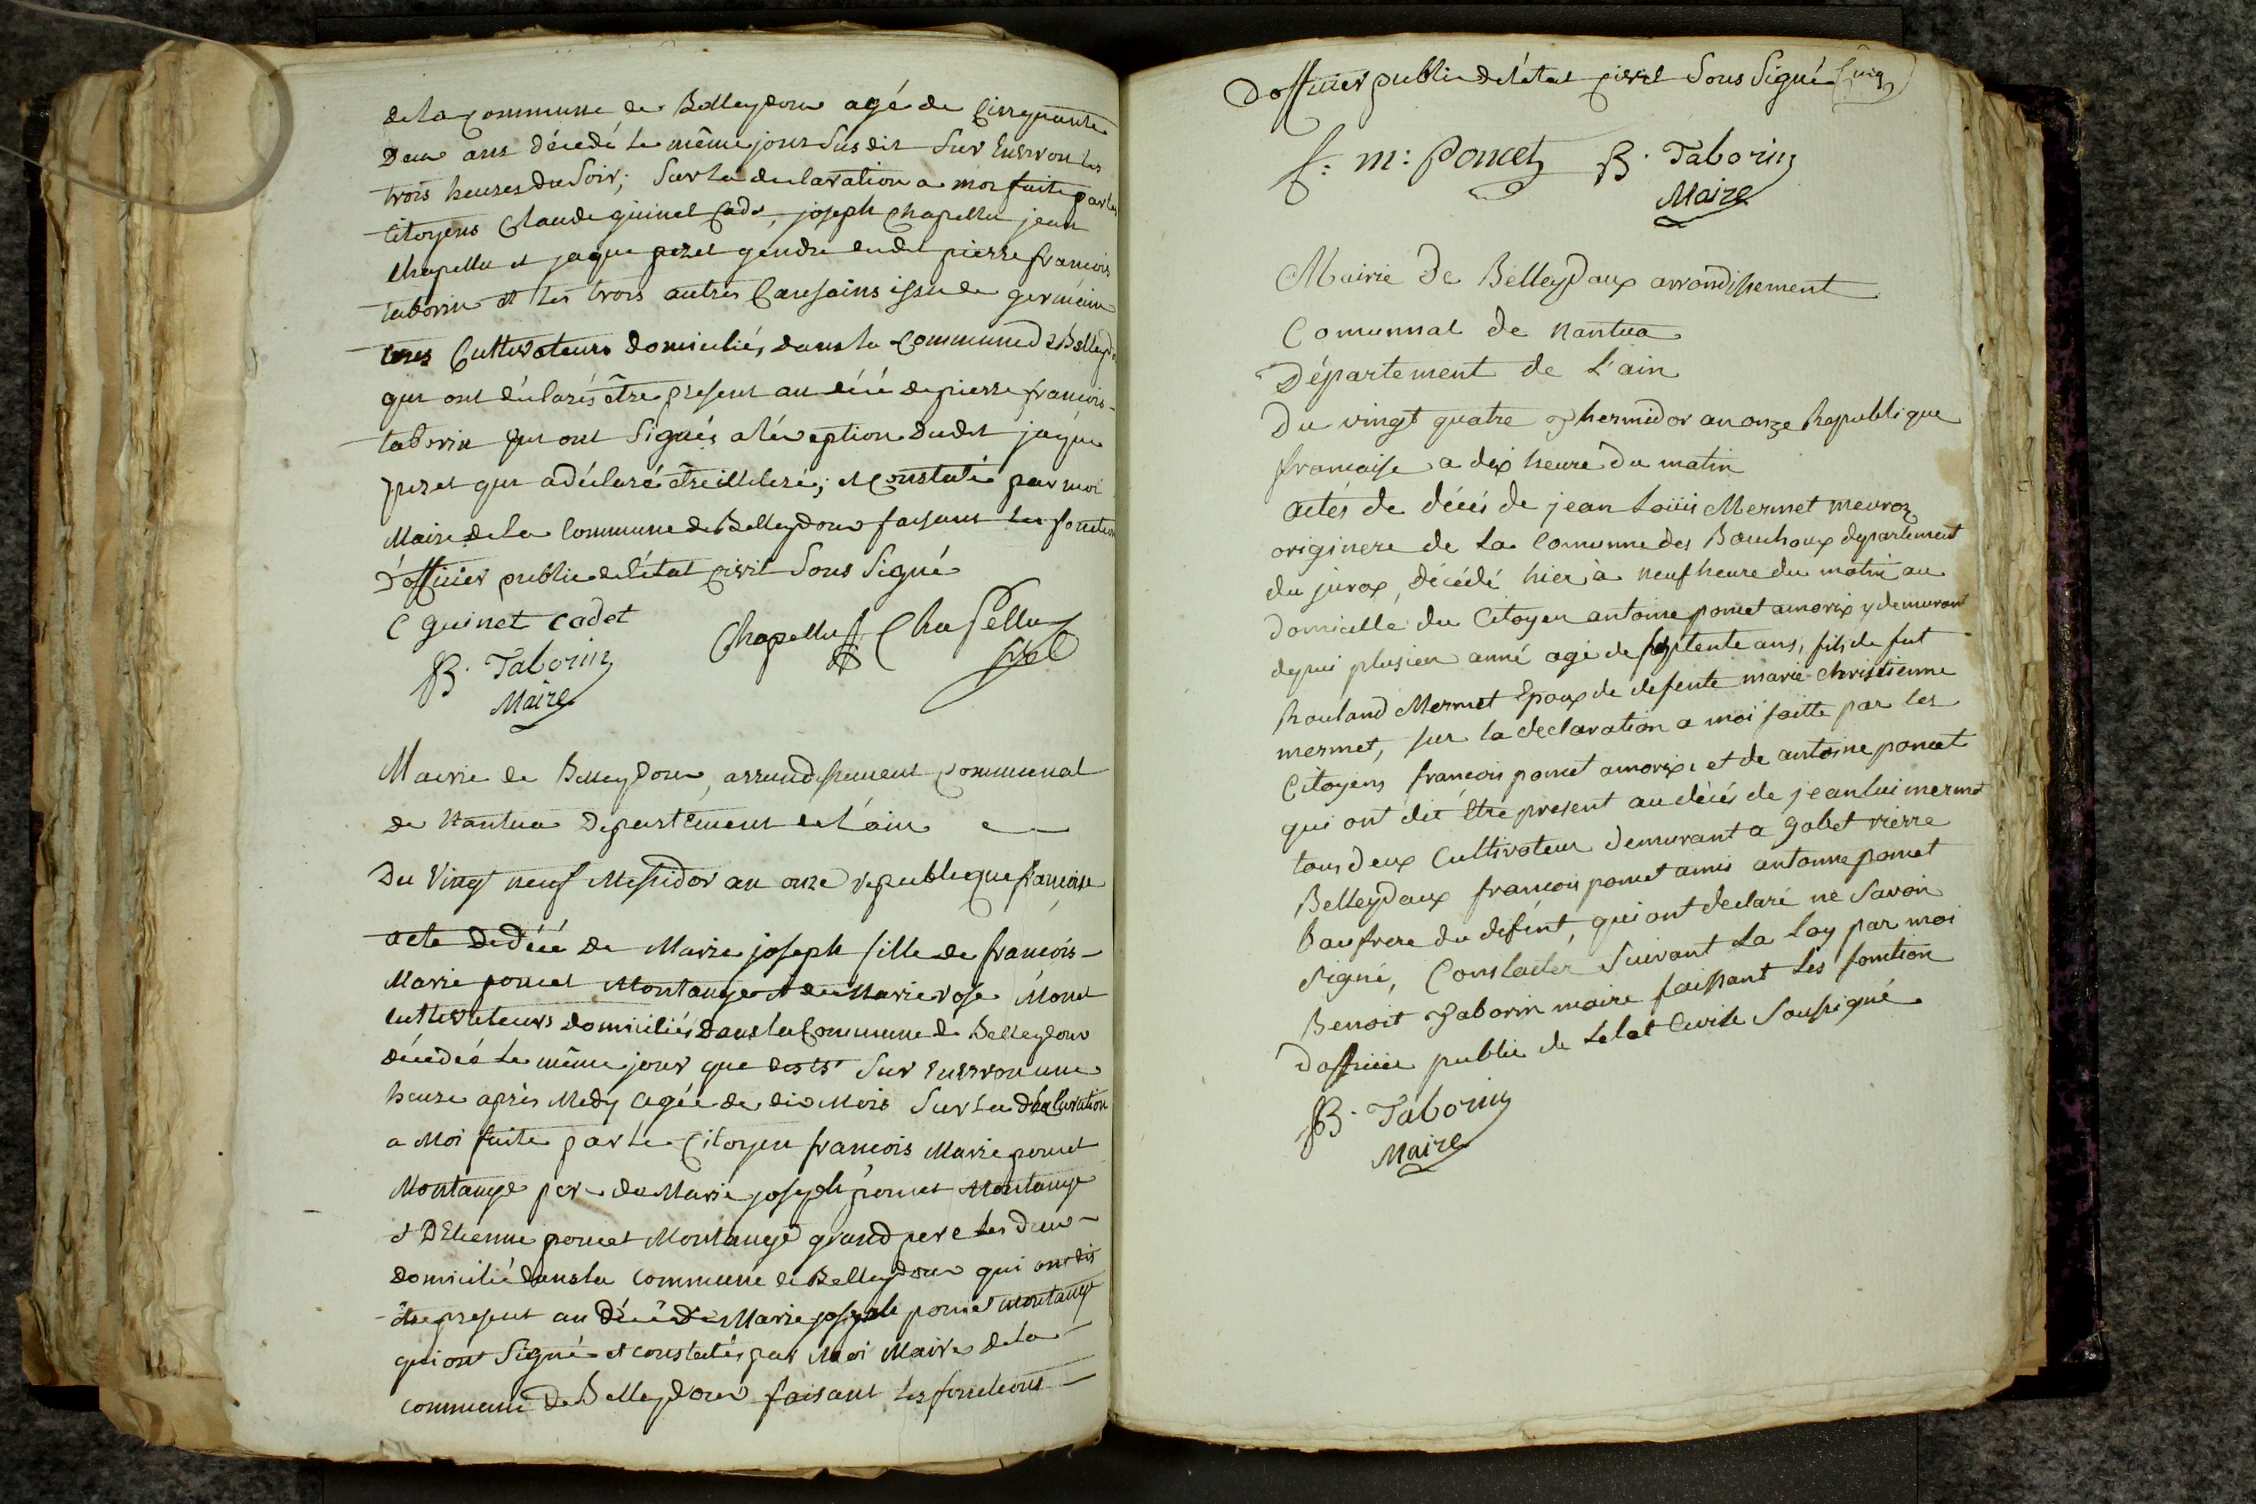 de la commune de Belleydoux agé de Cinquante
Deux ans décedé le même jour susdit sur Environ les
trois heures du soir; sur la declaration a moi faite par les
Citoyens Claude guinet Cadet, joseph Chapellu jean
Chapellu et jaque pezet gendre dudit pierre francois
taborin et les trois autres Causains issu de germain
tous Cultivateurs domiciliés dans la Commune de Belleyd
qui ont déclarés être present au décé de pierre francois
taborin qui ont signés a léxception dudit jaque
pezet qui a déclaré être illiteré; et Constaté par moi
Maire de la Commune de Belleydoux faisant les fonction
d'officier public de l'état civil sous signé
C guinet cadet
Chapellu J Chapellu
B. Taborin
Maire
Mairie de Belleydoux, arrundissement communal
de Nantua Departement de l'ain
Du Vingt neuf Messidor an onze republique francoise
acte de décé de Marie joseph fille de francois
Marie poncet Montange et de Marie rose Monet
cultivateurs domiciliés dans la Commune de Belleydoux
décédéé le même jour que dessus sur Environ une
heure après Medy agée de dix Mois sur la déclaration
a Moi faite par le Citoyen francois Marie poncet
Montange per de Marie joseph poncet Montange
et D'Etienne poncet Montange grand pere les deux
domicilié dans la commune de Belleydoux qui ont dit
être present au décé de Marie joseph poncet montange
qui ont signé et constatés par Moi Maire de la
commune de Belleydoux faisant les fonctions
D'officier public de l'état civil sous signé
f: m: Poncet B. Taborin
Maire
Mairie de Belleydaux arrondissement
Comunnal de Nantua
Département de L'ain
Du vingt quatre Thermidor an onze Republique
francaise a dix heure du matin
actés de décés de jean Louis Mermet meuroz
originere de la Comunne des Bouchoux departement
du jurax, décédé hier à neuf heure du matin au
domicille du Citoyen antoine poncet amorix y demurant
depui plusieu anné agé de septente ans, fils de fut
Rouland Mermet Epoux de defente marie christienne
mermet, sur la declaration a moi faitte par les
Citoyens francois poncet amorix, et de antoine poncet
qui ont dit être present au décés de jean lui mermet
tous deux Cultivateur demurant a gobet rierre
Belleydaux francois poncet amis antonne poncet
baufrere du defint, qui ont declaré ne savoir
signé, Constater suivant la loy par moi
Benoit Taborin maire faissant les fonction
d'officiée public de letat Civile sousigné
B. Taborin
Maire